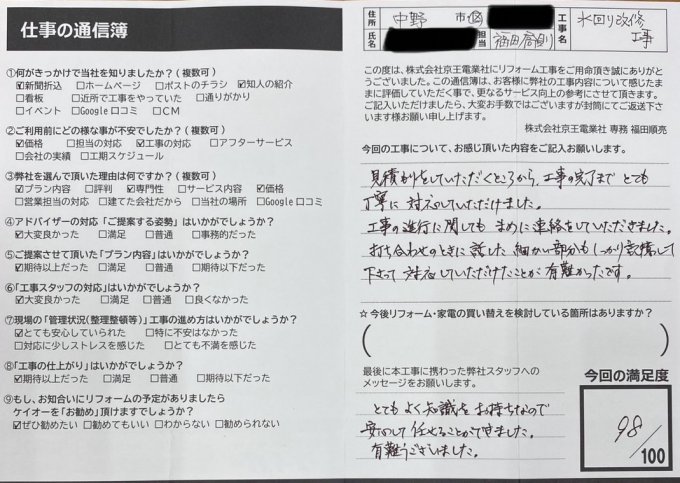 仕事の通信簿
①何がきっかけで当社を知りましたか？(複数可)
☑新聞折込 □ホームページ □ポストのチラシ ☑知人の紹介
□看板 □近所で工事をやっていた □通りがかり
□イベント □Google口コミ □CM
②ご利用前にどのような事が不安でしたか？(複数可)
☑価格 □担当の対応 ☑工事の対応 □アフターサービス
□会社の実績 □工期スケジュール
③弊社を選んで頂いた理由は何ですか？(複数可)
☑プラン内容 □評判 ☑専門性 □サービス内容 ☑価格
□営業担当の対応 □建てた会社だから □当社の場所 □Google口コミ
④アドバイザーの対応「ご提案する姿勢」はいかがでしょうか？
☑大変良かった □満足 □普通 □事務的だった
⑤ご提案させて頂いた「プラン内容」はいかがでしょうか？
☑期待以上だった □満足 □普通 □期待以下だった
⑥「工事スタッフの対応」はいかがでしょうか？
☑大変良かった □満足 □普通 □良くなかった
⑦現場の「管理状況(整理整頓等)」工事の進め方はいかがでしょうか？
☑とても安心していられた □特に不安はなかった
□対応に少しストレスを感じた □とても不満を感じた
⑧「工事の仕上がり」はいかがでしょうか？
☑期待以上だった □満足 □普通 □期待以下だった
⑨もし、お知合いにリフォームの予定がありましたら
ケイオーを「お勧め」頂けますでしょうか？
☑ぜひ勧めたい □勧めてもいい □わからない □勧められない
住所 中野 市区
氏名 担当 福田
工事名 水回り改修工事
この度は、株式会社京王電業社にリフォーム工事をご用命頂き誠にありがとう
ございました。この通信簿は、お客様に弊社の工事内容について感じたまま
に評価していただく事で、更なるサービス向上の参考にさせて頂きます。
ご記入いただけましたら、大変お手数ではございますが封筒にてご返送下さい
ます様お願い申し上げます。
株式会社京王電業社 専務 福田順亮
今回の工事について、お感じ頂いた内容をご記入お願いします。
見積もりをしていただくところから、工事の完了までとても
丁寧に対応していただけました。
工事の進行に関してもまめに連絡をしていただきました。
打ち合わせのときに話した細かい部分もしっかり記憶して
下さって対応していただけたことが有難かったです。
☆今後リフォーム・家電の買い替えを検討している箇所はありますか？
最後に本工事に携わった弊社スタッフへの
メッセージをお願いします。
とてもよく知識をお持ちなので
安心して任せることができました。
有難うございました。
今回の満足度
98/100